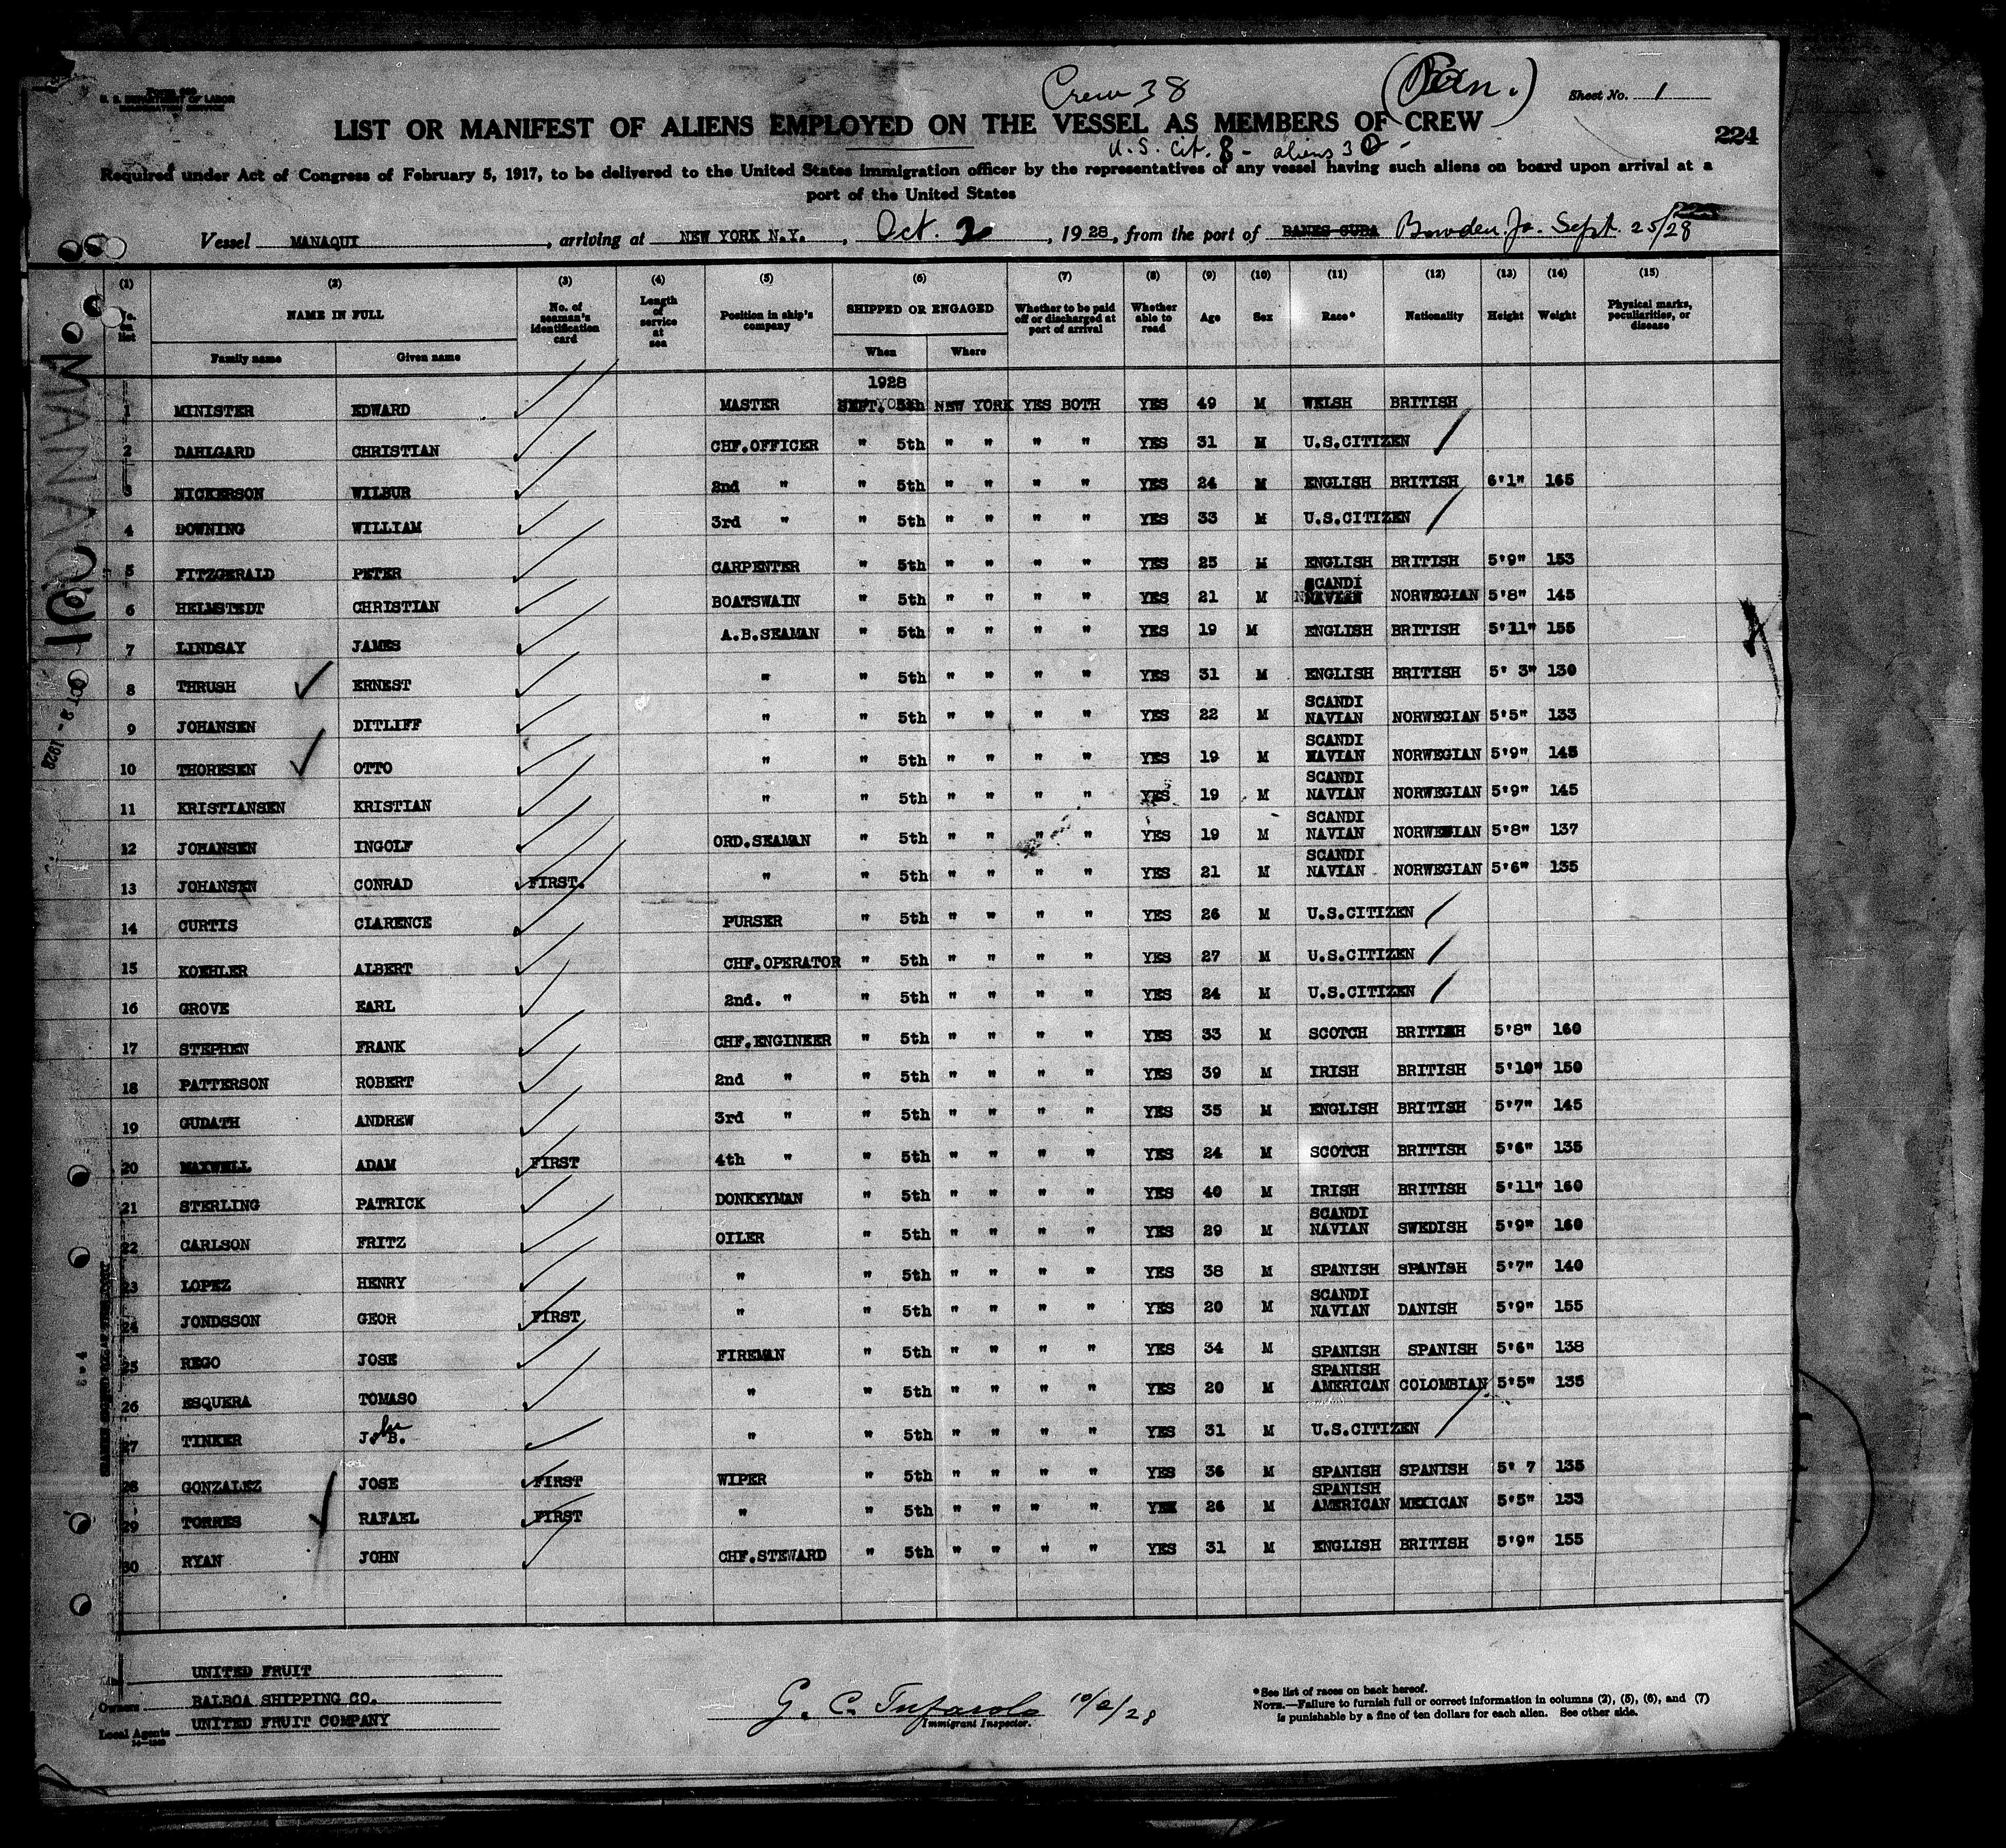 Crew 38 (Pan.)
U. S. DEPARTMENT OF LABOR
Sheet No. 1
LIST OR MANIFEST OF ALIENS EMPLOYED ON THE VESSEL AS MEMBERS OF CREW
224
U.S. Cit. 8 - aliens 30 -
Required under Act of Congress of February 5, 1917, to be delivered to the United States immigration officer by the representatives of any vessel having such aliens on board upon arrival at a
port of the United States
Vessel MANAQUI, arriving at NEW YORK N.Y., Oct. 2, 1928, from the port of BANES CUBA Bowden. Ja. Sept. 25/28
(1) (2) (3) (4) (5) (6) (7) (8) (9) (10) (11) (12) (13) (14) (15)
No. on list NAME IN FULL No. of seaman's identification card Length of service at sea Position in ship's company SHIPPED OR ENGAGED Whether to be paid off or discharged at port of arrival Whether able to read Age Sex Race* Nationality Height Weight Physical marks, peculiarities, or disease
Family name Given name When Where
1928
1 MINISTER EDWARD MASTER SEPT. 5th NEW YORK YES BOTH YES 49 M WELSH BRITISH
2 DAHLGARD CHRISTIAN CHF.OFFICER " 5th " " " " YES 31 M U.S.CITIZEN
3 NICKERSON WILBUR 2nd " " 5th " " " " YES 24 M ENGLISH BRITISH 6'1" 165
4 DOWNING WILLIAM 3rd " " 5th " " " " YES 33 M U.S.CITIZEN
5 FITZGERALD PETER CARPENTER " 5th " " " " YES 25 M ENGLISH BRITISH 5'9" 153
6 HELMSTEDT CHRISTIAN BOATSWAIN " 5th " " " " YES 21 M SCANDI NAVIAN NORWEGIAN 5'8" 145
7 LINDSAY JAMES A.B.SEAMAN " 5th " " " " YES 19 M ENGLISH BRITISH 5'11" 155
8 THRUSH ERNEST " " 5th " " " " YES 31 M ENGLISH BRITISH 5' 3" 130
9 JOHANSEN DITLIFF " " 5th " " " " YES 22 M SCANDI NAVIAN NORWEGIAN 5'5" 133
10 THORESEN OTTO " " 5th " " " " YES 19 M SCANDI NAVIAN NORWEGIAN 5'9" 145
11 KRISTIANSEN KRISTIAN " " 5th " " " " YES 19 M SCANDI NAVIAN NORWEGIAN 5'9" 145
12 JOHANSEN INGOLF ORD.SEAMAN " 5th " " " " YES 19 M SCANDI NAVIAN NORWEGIAN 5'8" 137
13 JOHANSEN CONRAD FIRST. " " 5th " " " " YES 21 M SCANDI NAVIAN NORWEGIAN 5'6" 135
14 CURTIS CLARENCE PURSER " 5th " " " " YES 26 M U.S.CITIZEN
15 KOEHLER ALBERT CHF.OPERATOR " 5th " " " " YES 27 M U.S.CITIZEN
16 GROVE EARL 2nd. " " 5th " " " " YES 24 M U.S.CITIZEN
17 STEPHEN FRANK CHF.ENGINEER " 5th " " " " YES 33 M SCOTCH BRITISH 5'8" 160
18 PATTERSON ROBERT 2nd " " 5th " " " " YES 39 M IRISH BRITISH 5'10" 150
19 GUDATH ANDREW 3rd " " 5th " " " " YES 35 M ENGLISH BRITISH 5'7" 145
20 MAXWELL ADAM FIRST 4th " " 5th " " " " YES 24 M SCOTCH BRITISH 5'6" 135
21 STERLING PATRICK DONKEYMAN " 5th " " " " YES 40 M IRISH BRITISH 5'11" 160
22 CARLSON FRITZ OILER " 5th " " " " YES 29 M SCANDI NAVIAN SWEDISH 5'9" 160
23 LOPEZ HENRY " " 5th " " " " YES 38 M SPANISH SPANISH 5'7" 140
24 JONDSSON GEOR FIRST " " 5th " " " " YES 20 M SCANDI NAVIAN DANISH 5'9" 155
25 REGO JOSE FIREMAN " 5th " " " " YES 34 M SPANISH SPANISH 5'6" 138
26 ESQUERA TOMASO " " 5th " " " " YES 20 M SPANISH AMERICAN COLOMBIAN 5'5" 135
27 TINKER J. B. " " 5th " " " " YES 31 M U.S.CITIZEN
28 GONZALEZ JOSE FIRST WIPER " 5th " " " " YES 36 M SPANISH SPANISH 5' 7 135
29 TORRES RAFAEL FIRST " " 5th " " " " YES 26 M SPANISH AMERICAN MEXICAN 5'5" 133
30 RYAN JOHN CHF.STEWARD " 5th " " " " YES 31 M ENGLISH BRITISH 5'9" 155
MANAQUI
OCT 2 - 1928
Line UNITED FRUIT
Owners BALBOA SHIPPING CO.
Local Agents UNITED FRUIT COMPANY
G. C. 10/2/28
Immigrant Inspector.
*See list of races on back hereof.
NOTE.—Failure to furnish full or correct information in columns (2), (5), (6), and (7)
is punishable by a fine of ten dollars for each alien. See other side.